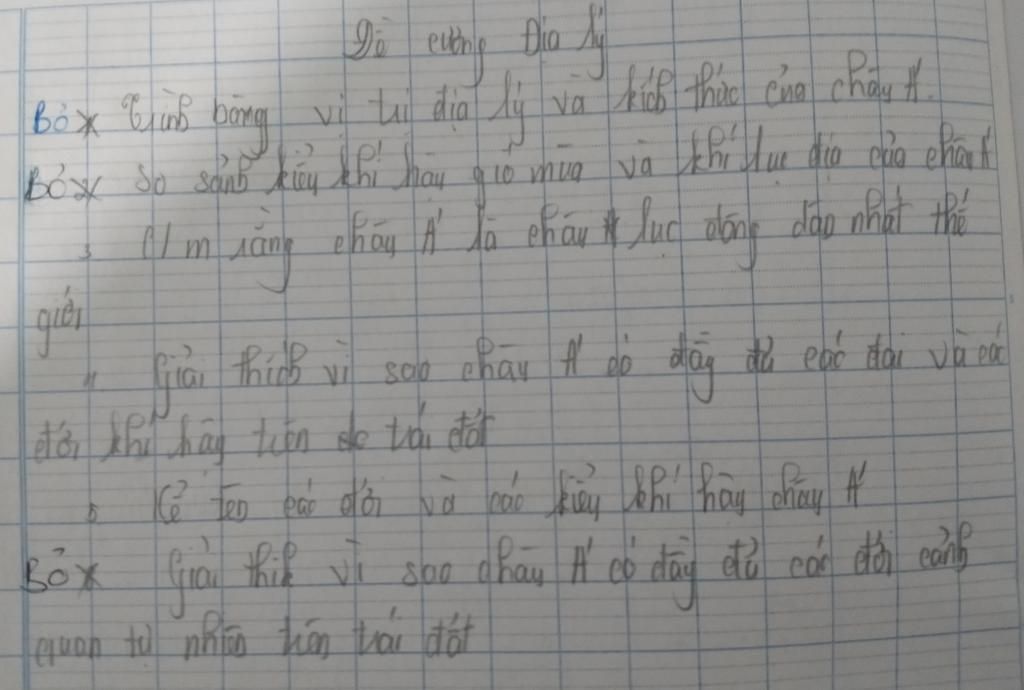 Đề cương Địa lý
Bỏ x Trình bồng vị trí địa lý và kích thức của chây Á.
Bỏ x So sánh kiểu khí hậu gió mùa và khí lục địa của châu Á
3 C/m rằng châu Á là châu lục đông dân nhất thế
giới
4 Giải thích vì sao châu Á có đầy đủ các đai và các
đới khí hậy trên trái đất
5 Kể tên các đới và các kiểu khí hậy châu Á
Bỏ x Giải thik vì sao châu Á có đầy đủ các đới cảnh
quan tự nhiên trên trái đất